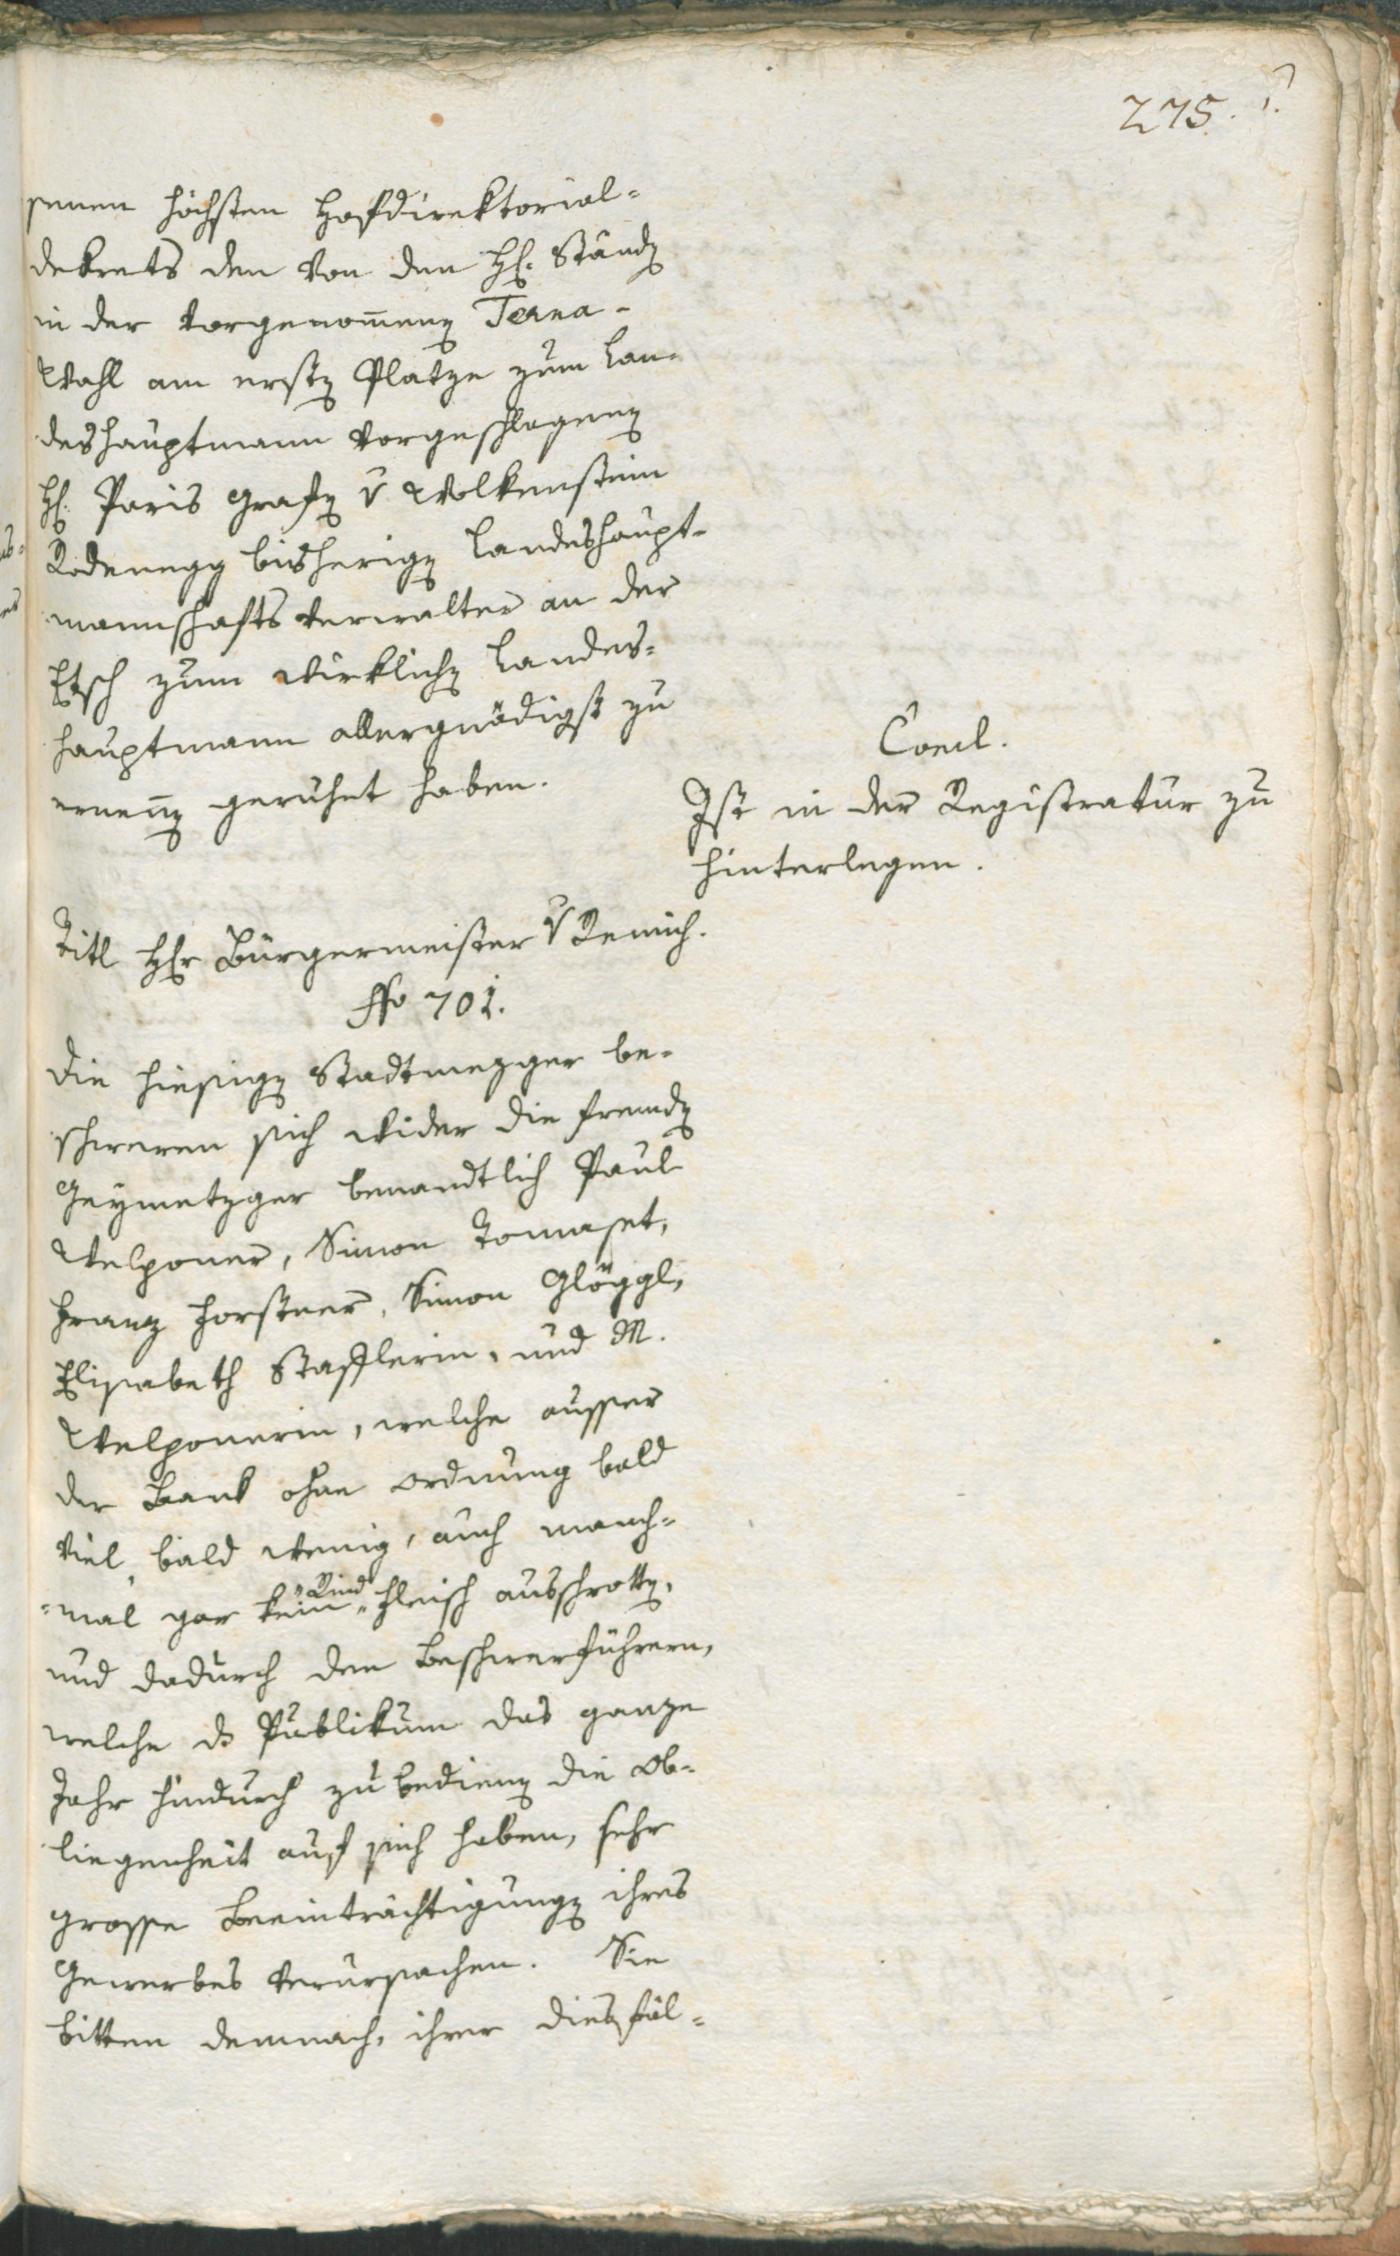 275.
senen höchsten Hofdirektorial-
dekrets den von den H. Ständen
in der vorgenommenen Terna-
Wahl am ersten Platze zum Lan-
deshauptmann vorgeschlagenen
H. Paris Grafen v Wolkenstein
Rodenegg bisherigen Landeshaupt-
mannschafts Verwalter an der
Etsch zum wirklichen Landes-
hauptmann allergnädigst zu
ernennen geruhet haben.
Concl.
Ist in der Registratur zu
hinterlegen.
Titl Hr Bürgermeister v Remich.
No 701.
Die hiesigen Stadtmezger be-
schweren sich wider die fremden
Geymetzger benandtlich Paul
Welponer, Simon Tomaset,
Franz Forstner, Simon Glöggl,
Elisabeth Stafflerin, und M.
Welponerin, welche ausser
der Bank ohne Ordnung bald
viel, bald wenig, auch manch-
mal gar kein Rind Fleisch ausschrotten,
und dadurch den Beschwerführern,
welche ds Publikum das ganze
Jahr hindurch zu bedienen die Ob-
liegenheit auf sich haben, sehr
grosse Beeinträchtigungen ihres
Gewerbes verursachen. Sie
bitten demnach, ihrer diesfäl-